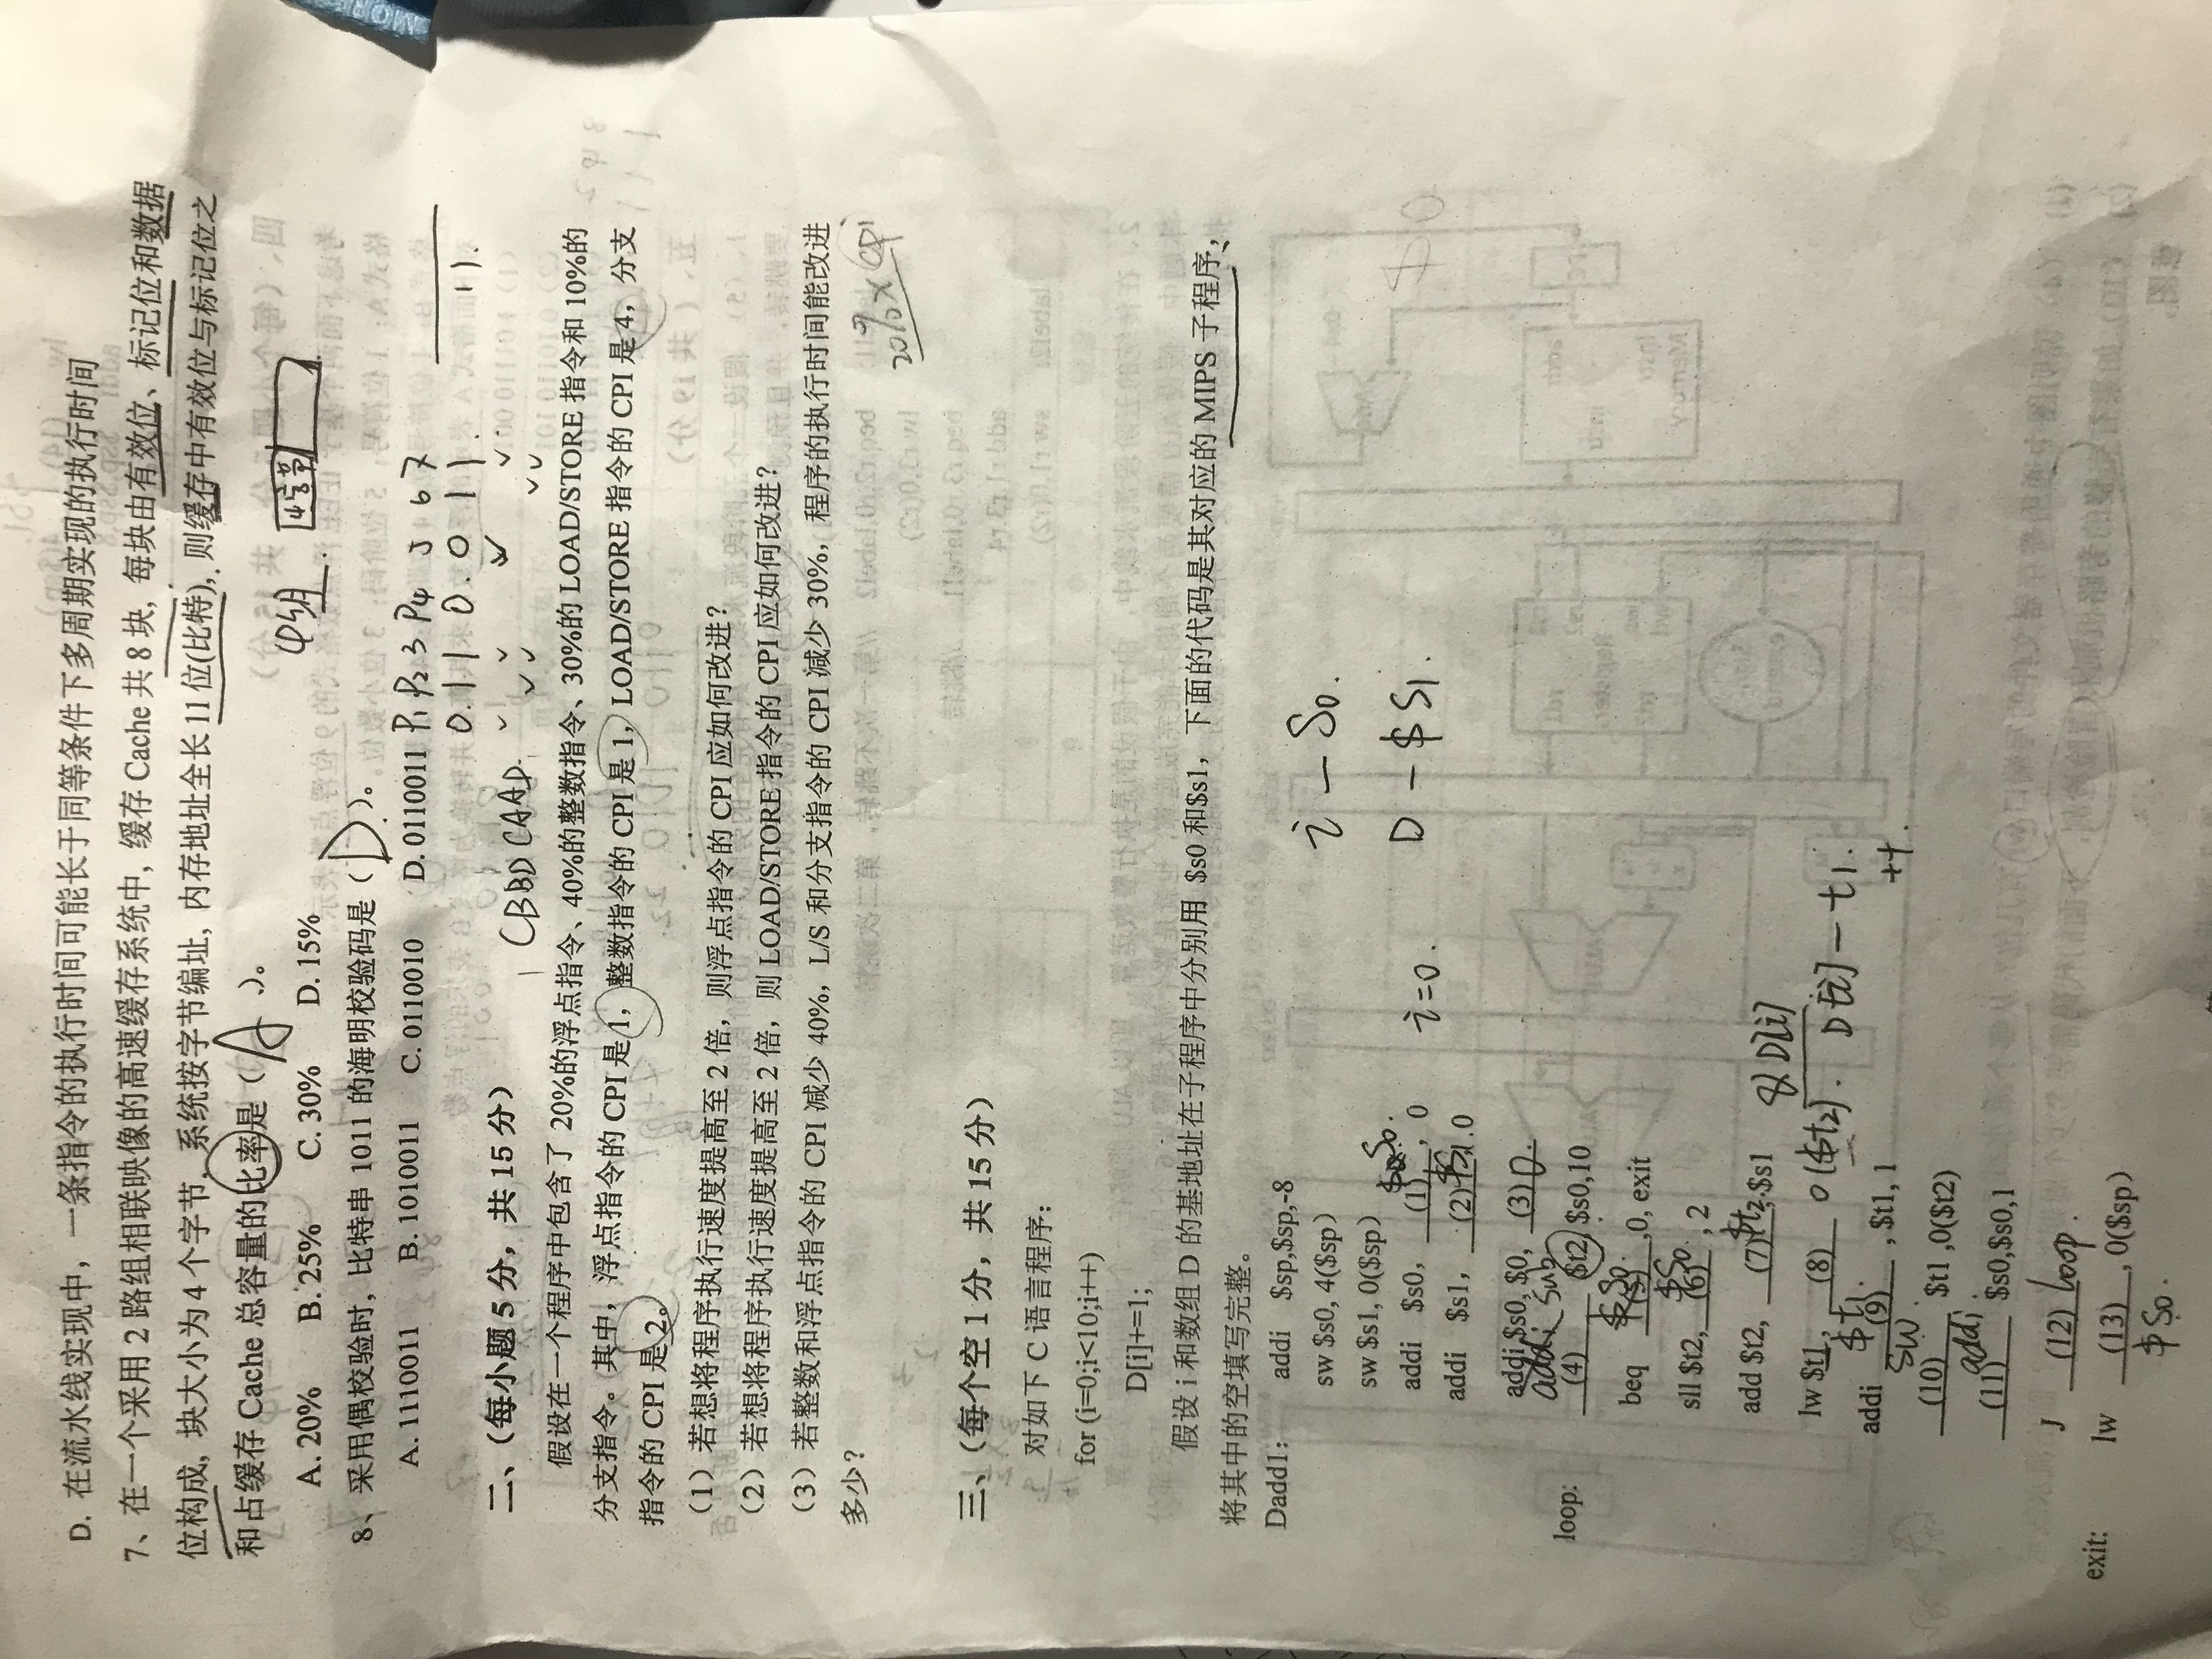 D. 在流水线实现中，一条指令的执行时间可能长于同等条件下多周期实现的执行时间
7、在一个采用 2 路组相联映像的高速缓存系统中, 缓存 Cache 共 8 块, 每块由有效位、标记位和数据
位构成, 块大小为 4 个字节, 系统按字节编址, 内存地址全长 11 位(比特), 则缓存中有效位与标记位之
和占缓存 Cache 总容量的比率是（ A ）。
4组 4字节
A. 20% B. 25% C. 30% D. 15%
8、采用偶校验时, 比特串 1011 的海明校验码是（ D ）。
A. 1110011 B. 1010011 C. 0110010 D. 0110011 P1 P2 3 P4 5 6 7
0 1 1 0 0 1 1 11.
二、（每小题 5 分，共 15 分）
CBBDCAAD
假设在一个程序中包含了 20%的浮点指令、40%的整数指令、30%的 LOAD/STORE 指令和 10%的
分支指令。其中，浮点指令的 CPI 是 1，整数指令的 CPI 是 1，LOAD/STORE 指令的 CPI 是 4，分支
指令的 CPI 是 2。
（1）若想将程序执行速度提高至 2 倍，则浮点指令的 CPI 应如何改进？
（2）若想将程序执行速度提高至 2 倍，则 LOAD/STORE 指令的 CPI 应如何改进？
（3）若整数和浮点指令的 CPI 减少 40%，L/S 和分支指令的 CPI 减少 30%，程序的执行时间能改进
多少？
20% × CPi
三、（每个空 1 分，共 15 分）
对如下 C 语言程序：
for (i=0;i<10;i++)
D[i]+=1;
假设 i 和数组 D 的基地址在子程序中分别用 $s0 和$s1，下面的代码是其对应的 MIPS 子程序，
将其中的空填写完整。
Dadd1： addi $sp,$sp,-8
sw $s0, 4($sp) i — S0.
sw $s1, 0($sp)
S0.
addi $s0, (1) , 0 i=0. D — $S1.
addi $s1, (2) , 0
addi $s0, $0, (3) 0.
addi sub
loop: (4) $t2, $s0,10
$S0.
beq (5) ,0, exit
$S0
sll $t2, (6) , 2
add $t2, (7) $t2, $s1
&D[i]
lw $t1, (8) 0($t2). D[i] — t1.
$t1.
addi (9) , $t1, 1 ++.
SW.
(10) $t1 ,0($t2)
addi.
(11) $s0,$s0,1
J (12) loop.
exit: lw (13) , 0($sp)
$S0.